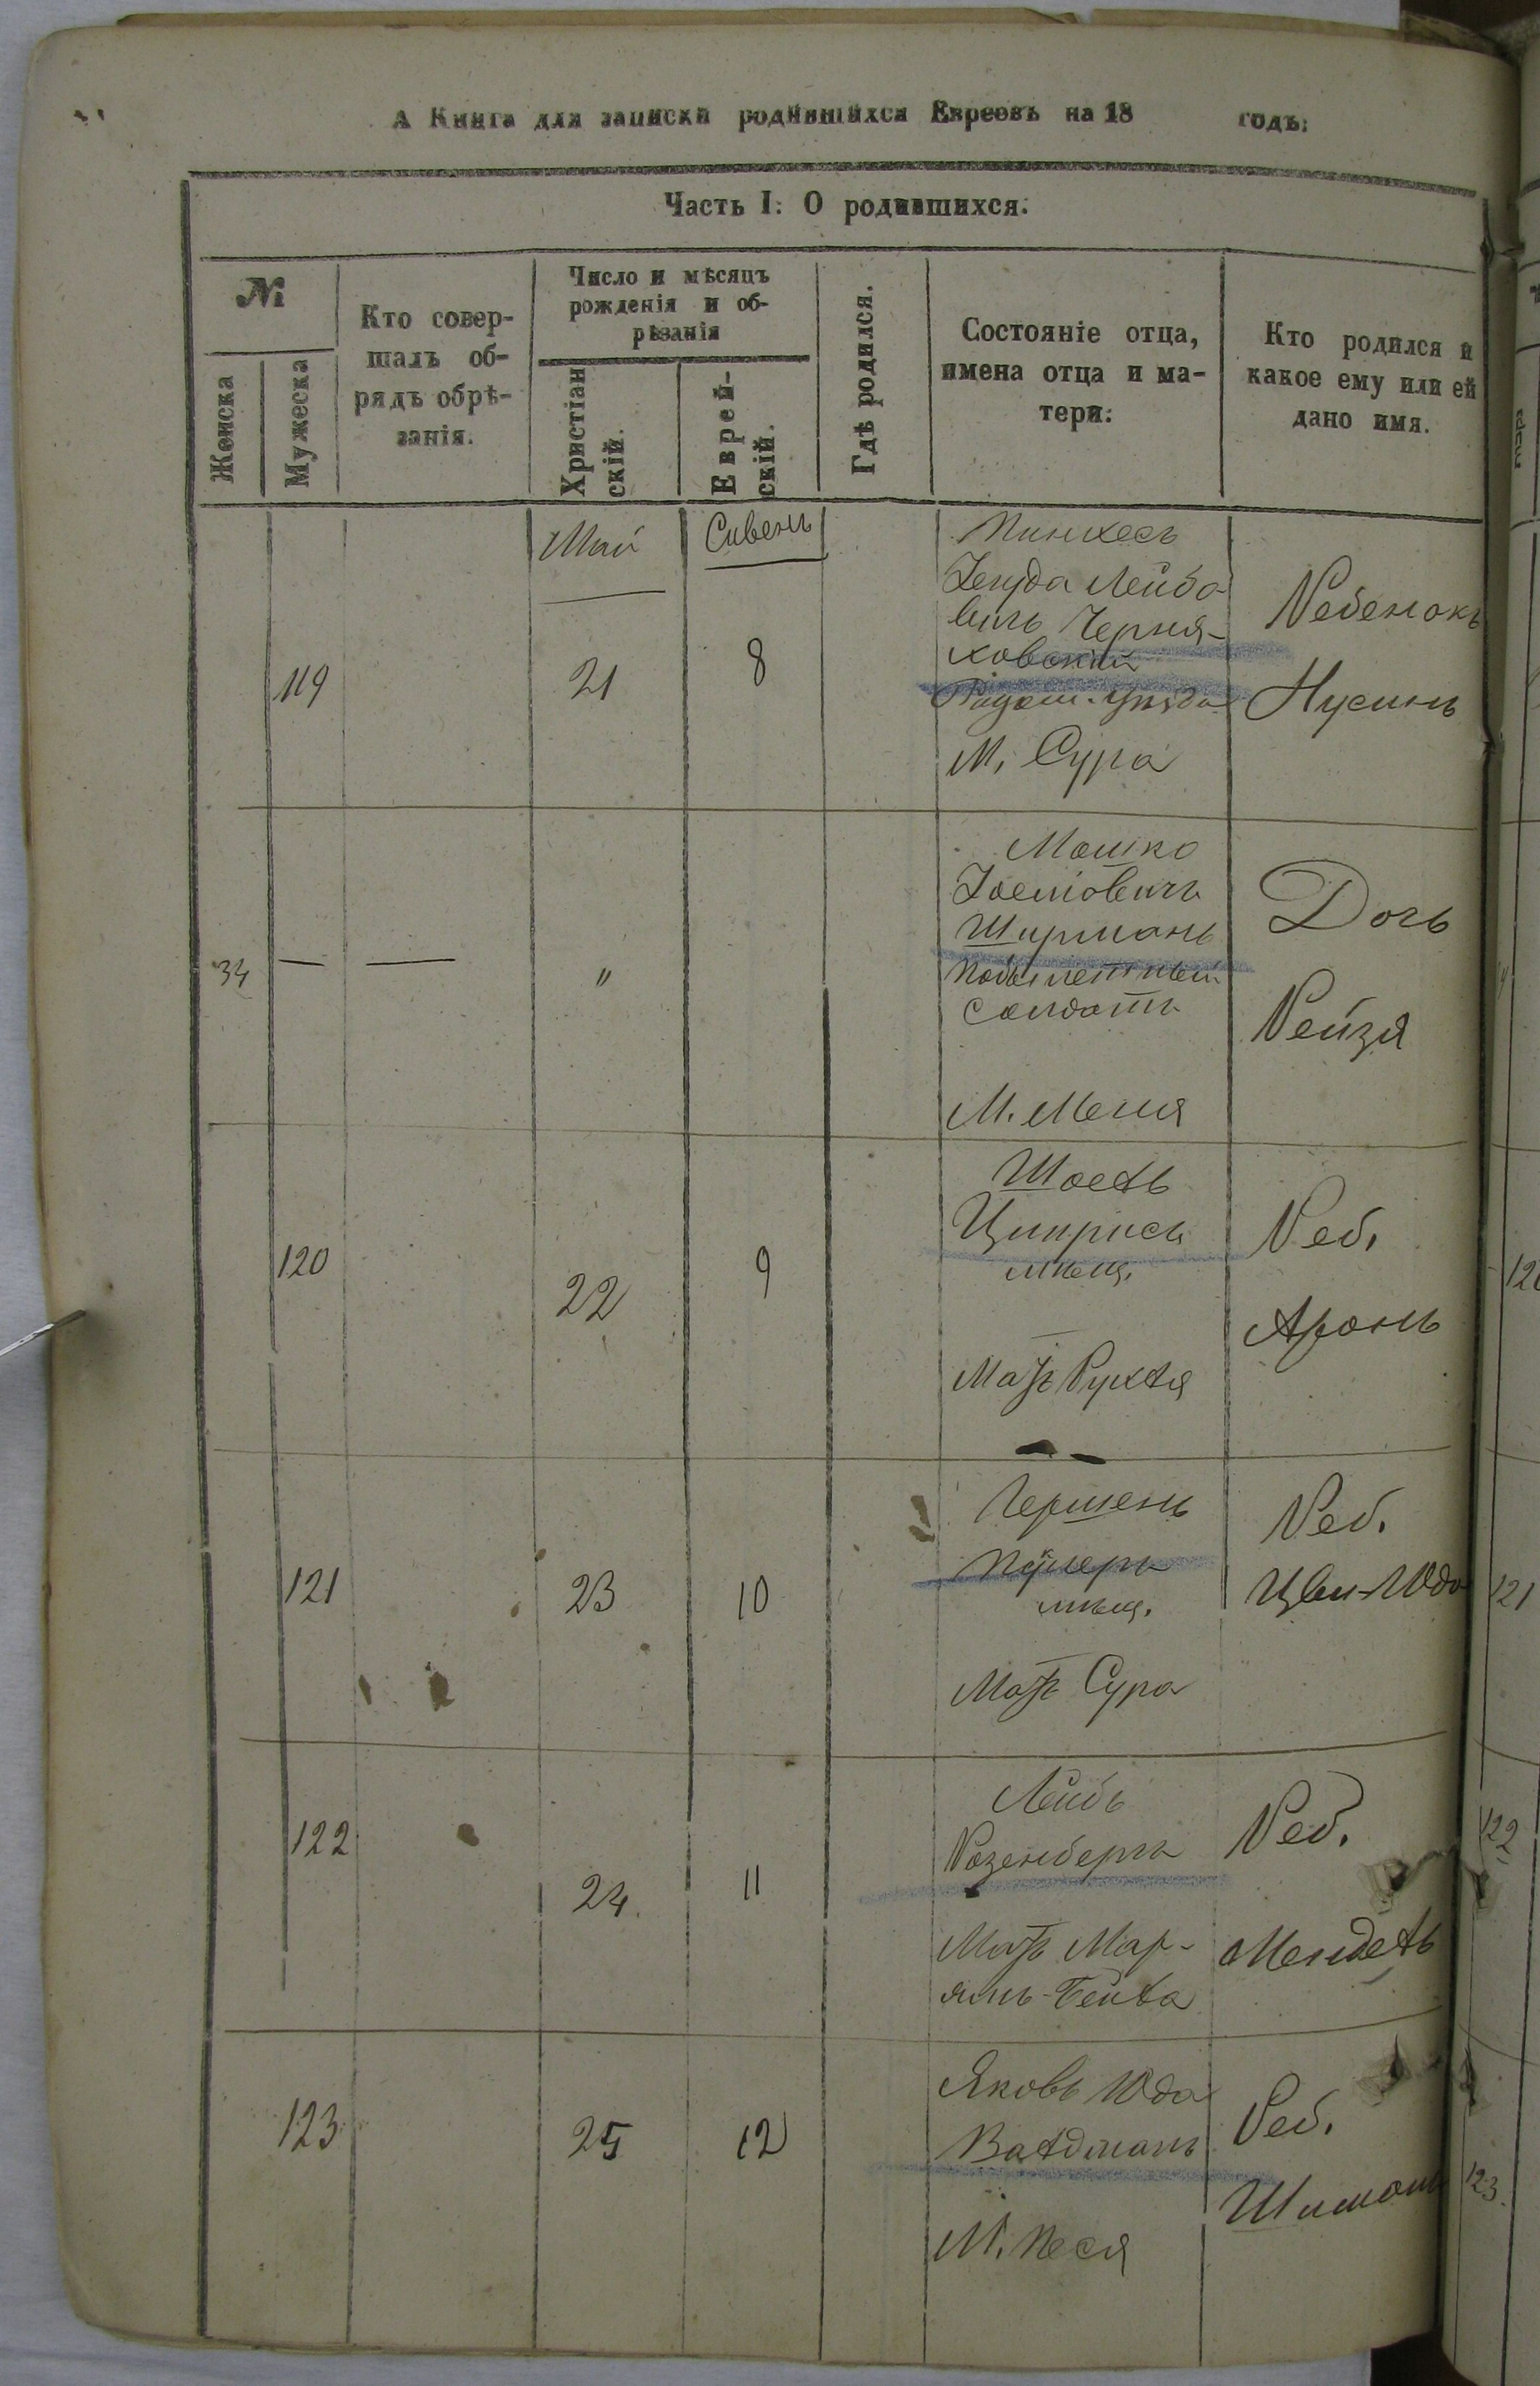 А Книга для записки родившихся Евреовъ на 18 годъ:
Часть I: О родившихся.
№
Женска
Мужеска
Кто совер-
шалъ об-
рядъ обрѣ-
занія.
Число и мѣсяцъ
рожденія и об-
рѣзанія
Христіан
скій.
Еврей-
скій.
Гдѣ родился.
Состояніе отца,
имена отца и ма-
тери:
Кто родился и
какое ему или ей
дано имя.
Май
Сивень
119
21
8
Пинхесъ
Іегуда Лейбо-
вичъ Черня-
ховскій
М. Сура
Ребенокъ
Нусинъ
34
—
—
"
Мошко
Шурманъ
солдатъ
М. Меня
Дочь
Рейзя
120
22
9
Шоель
Циприсъ
мѣщ.
Мать Рухля
Реб.
Аронъ
121
23
10
Гершень
мѣщ.
Мать Сура
Реб.
Цви-Юдо
122
24.
11
Лейбъ
Розенбергъ
Мать Мар-
ямъ-Бейла
Реб.
Мендель
123
25
12
Яковъ Юда
Валдманъ
М. Песя
Реб.
Шимонъ
121
122
123.